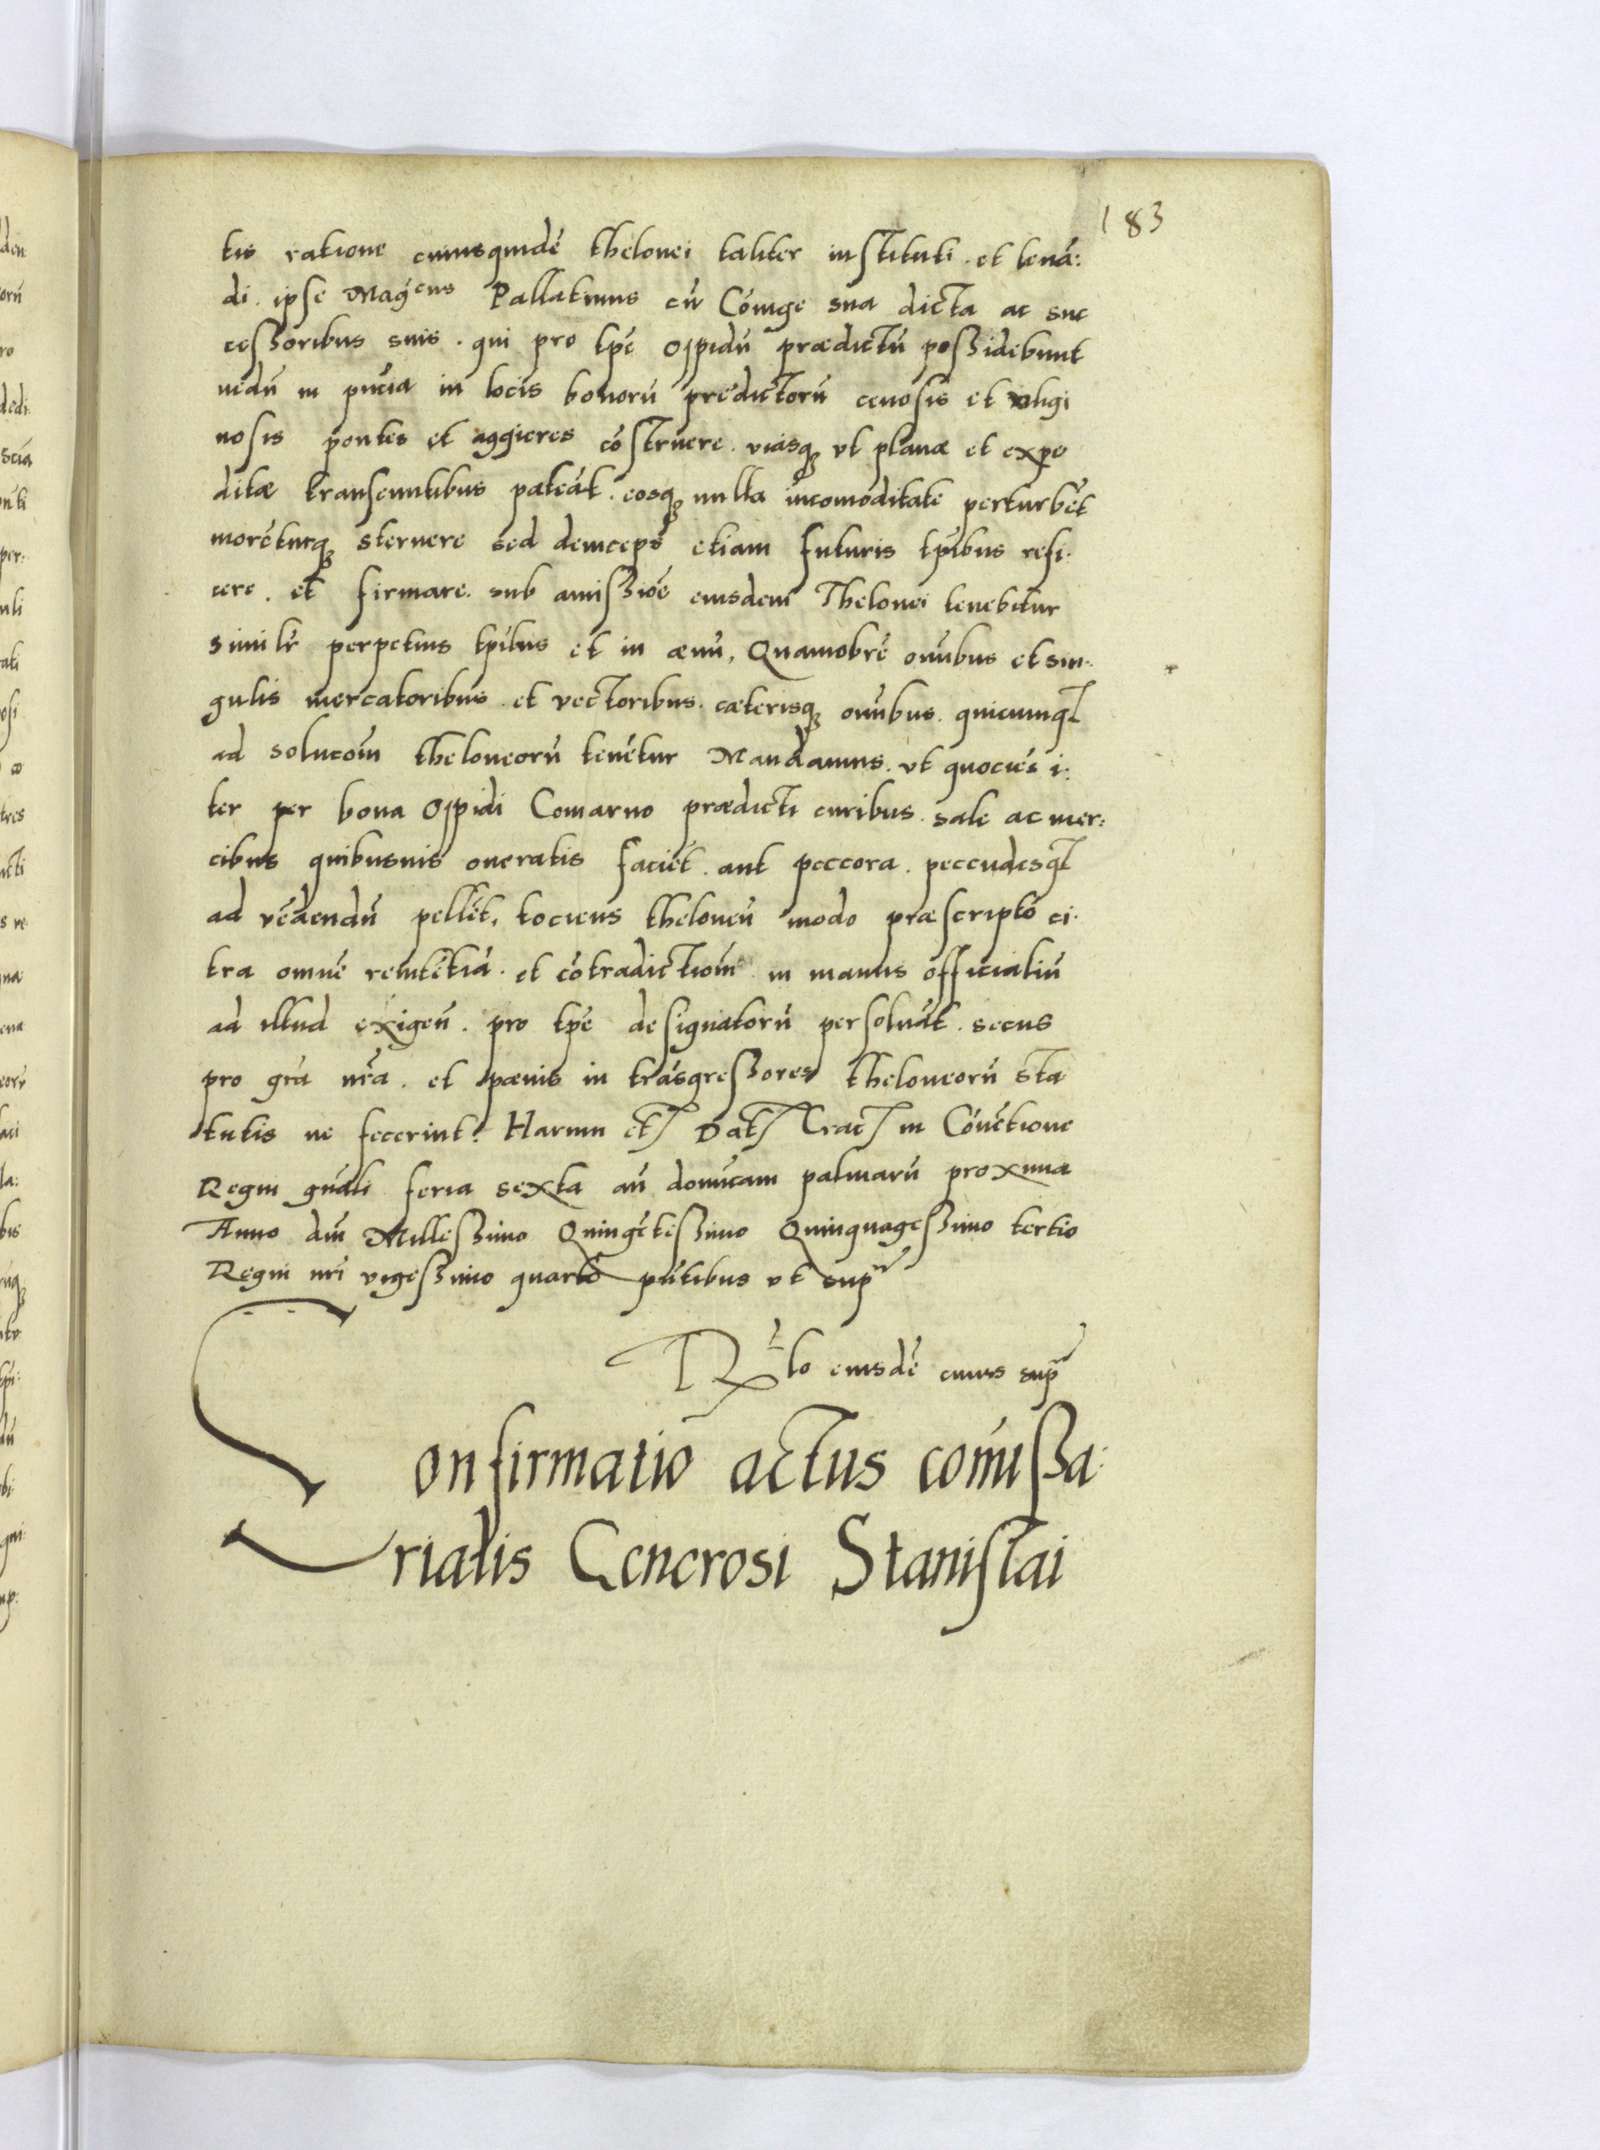 183
tis ratione cuiusquidē thelonei taliter instituti. et leuā:
di. ipse Magcus Pallatinus cū Cōiuge sua dicta ac suc
cessoribus suis. qui pro tpē oppidū prædictū possidebunt
nedū in pn̄cia in locis bonorū predictorū cenosis et uligi
nosis pontes et aggieres cōstruere. viasq̨ vt planæ et expe
ditæ transeuntibus pateāt. eosq̨ nulla incomoditate perturbēt
morēturq̨ sternere sed deinceps etiam futuris tpibus refi:
cere. et firmare. sub amissiōe eiusdem Thelonei tenebitur
similr̄ perpetuis tpibus et in æuū, Quamobrē oībus et sin:
gulis mercatoribus et vectoribus. cæterisq̨ oībus. quicunq̨
ad solucōm theloneorū tenētur Mandamus. vt quocies i:
ter per bona Oppidi Comarno prædicti curibus sale ac mer:
cibus quibusuis oneratis faciēt. aut peccora. peccudesq̨
ad vēdendū pellēt, tociens theloneū modo præscripto ci:
tra omnē renitētiā. et cōtradictiom̄ in manus officialiū
ad illud exigen̄. pro tpe designatorū persoluāt. secus
pro gra nrā. et pænis in trāsgressores theloneorū sta
tutis ne fecerint. Harum etꝭ Datꝭ Cracꝭ in Cōuētione
Regni gn̄ali feria sexta an̄ domīcam palmarū proxima
Anno dn̄i Millessimo Quingētessimo Quinquagessimo tertio
Regni nrī vigessimo quarto pn̄tibus vt supᵃ
Rlō eiusdē cuius supᵃ
Confirmatio actus com̄issa:
rialis Generosi Stanislai